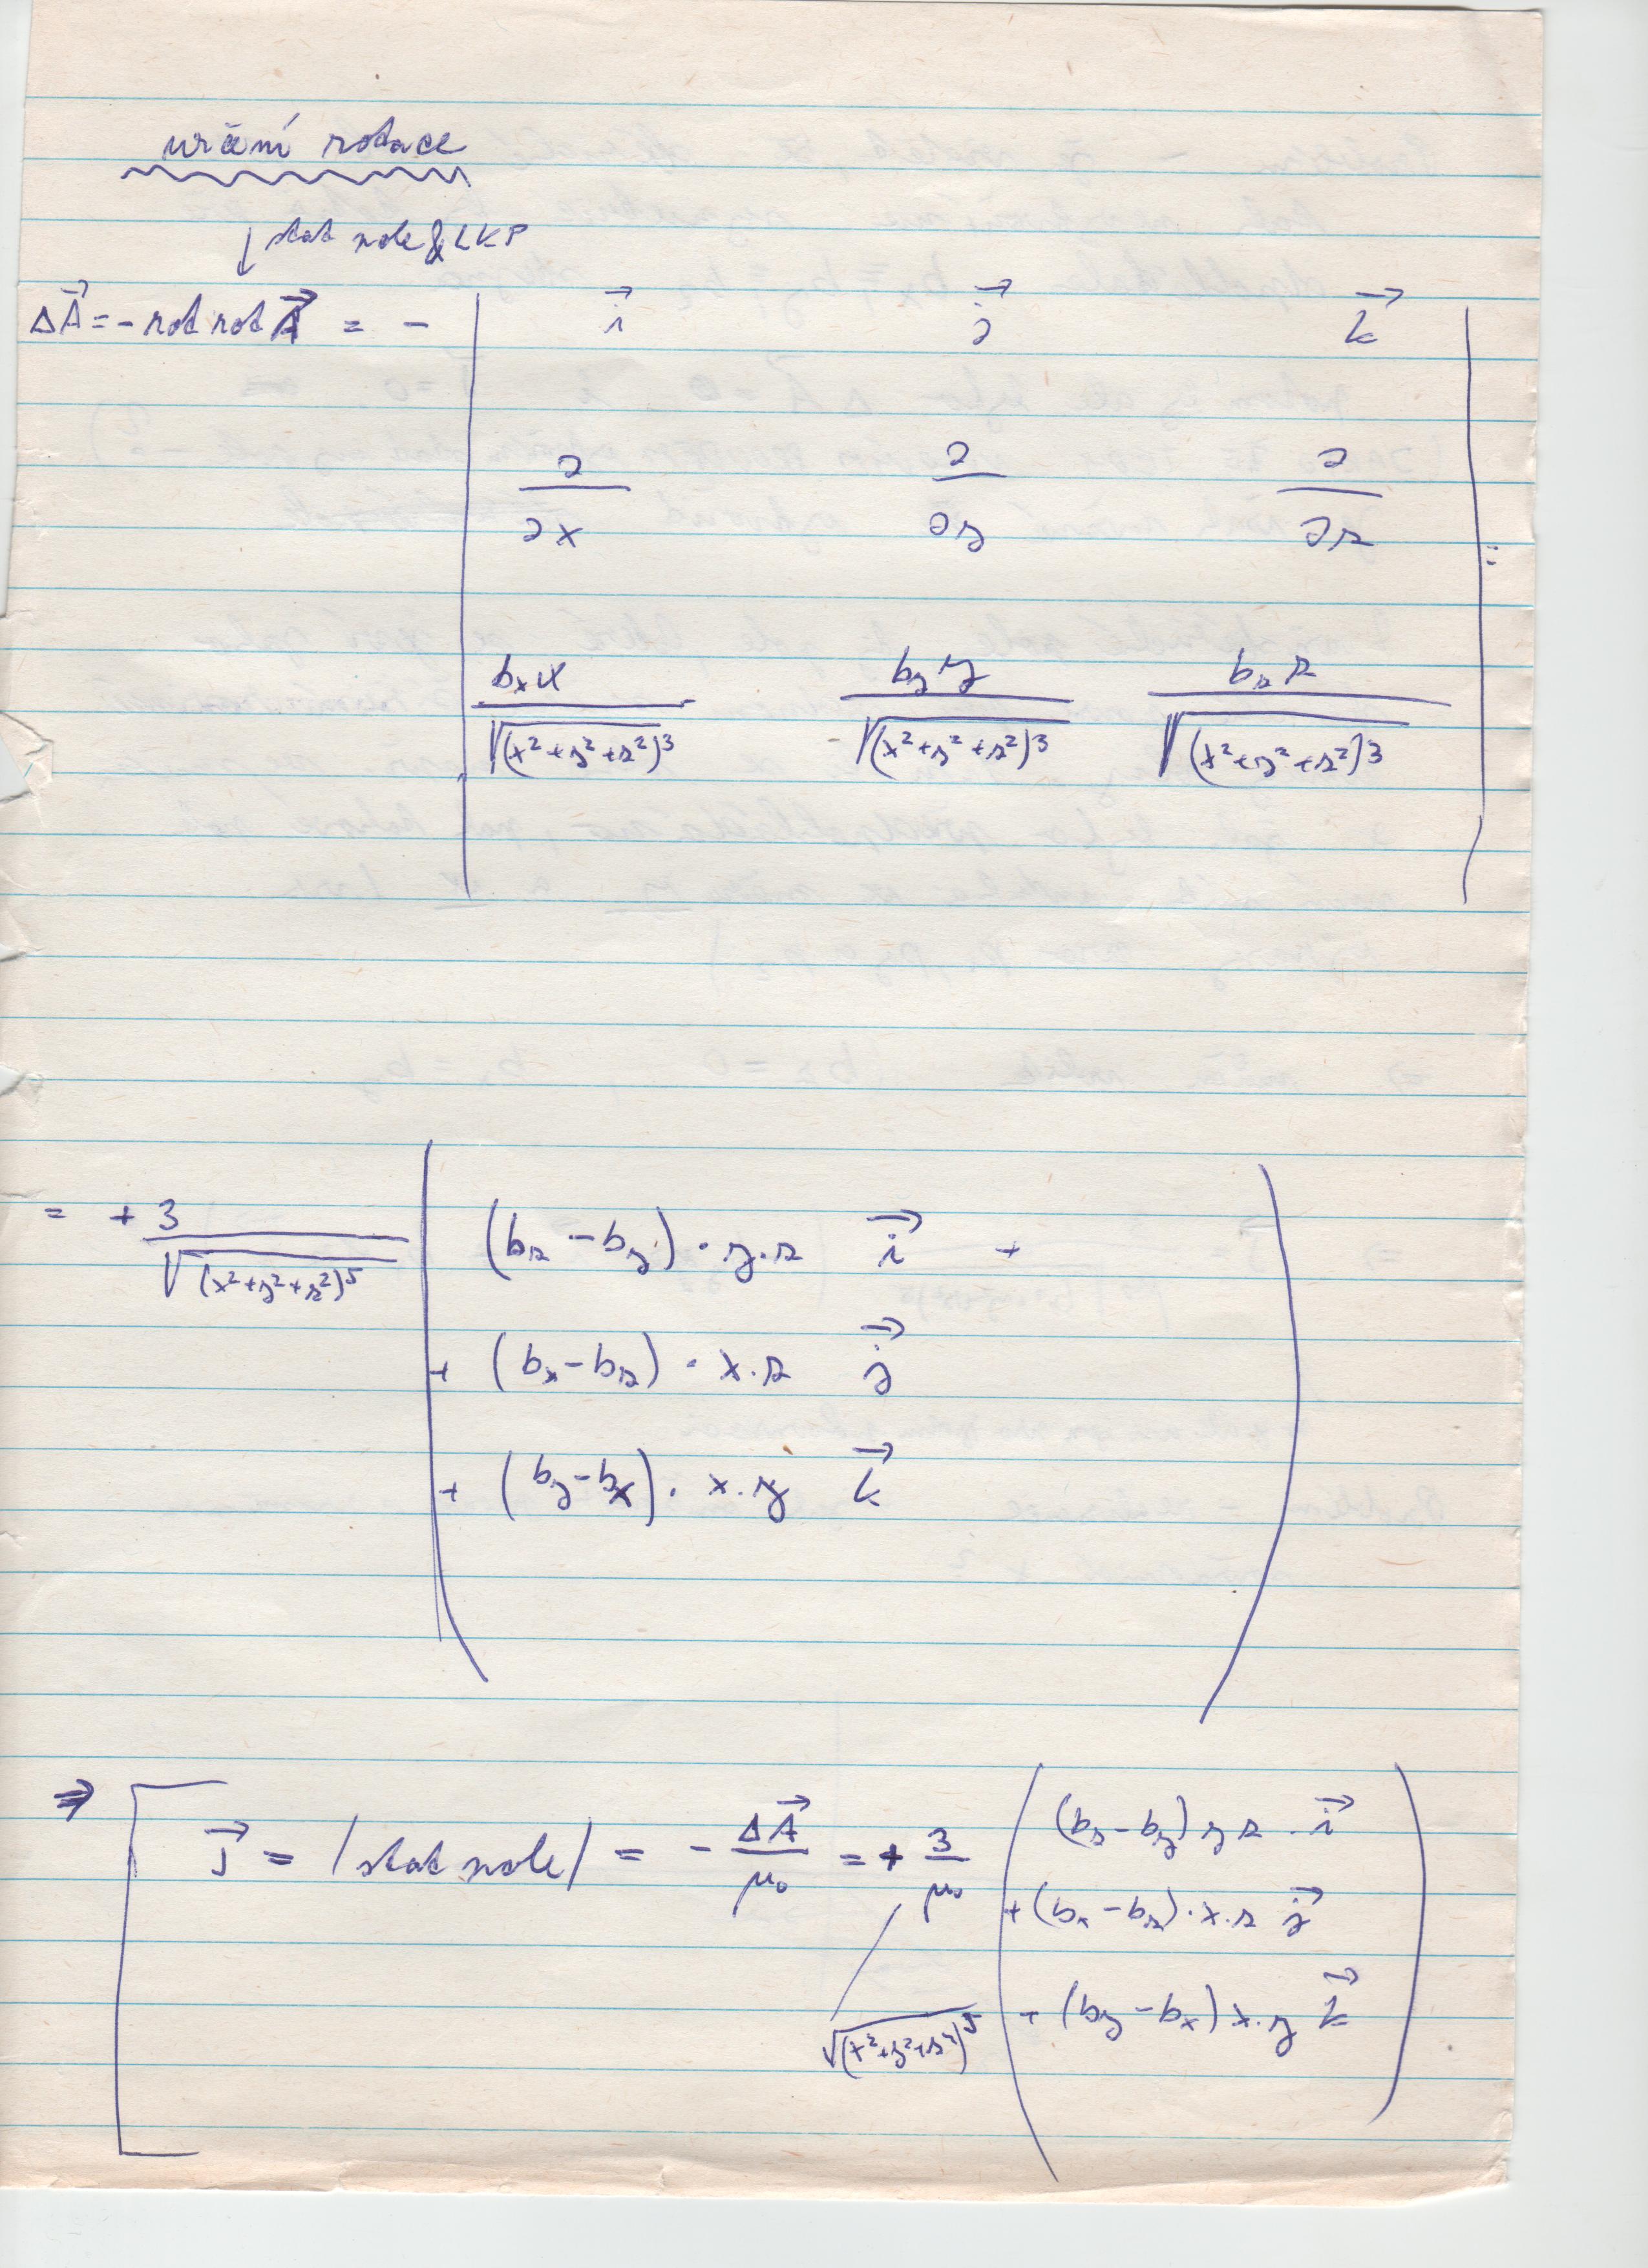 určení rotace
↓ stat pole & LKP
ΔA⃗ = - rot rot A⃗ = - | i⃗ j⃗ k⃗ |
∂/∂x ∂/∂y ∂/∂z =
b_x x / √(x²+y²+z²)³ b_y y / √(x²+y²+z²)³ b_z z / √(x²+y²+z²)³
= + 3 / √(x²+y²+z²)⁵ ( (b_z - b_y) · y.z i⃗ +
+ (b_x - b_z) · x.z j⃗
+ (b_y - b_x) · x.y k⃗ )
⇒ [ J⃗ = |stat pole| = - ΔA⃗/μ₀ = + 3/μ₀ ( (b_z - b_y) y z · i⃗
+ (b_x - b_z) · x.z j⃗
√(x²+y²+z²)⁵ + (b_y - b_x) x.y k⃗ )